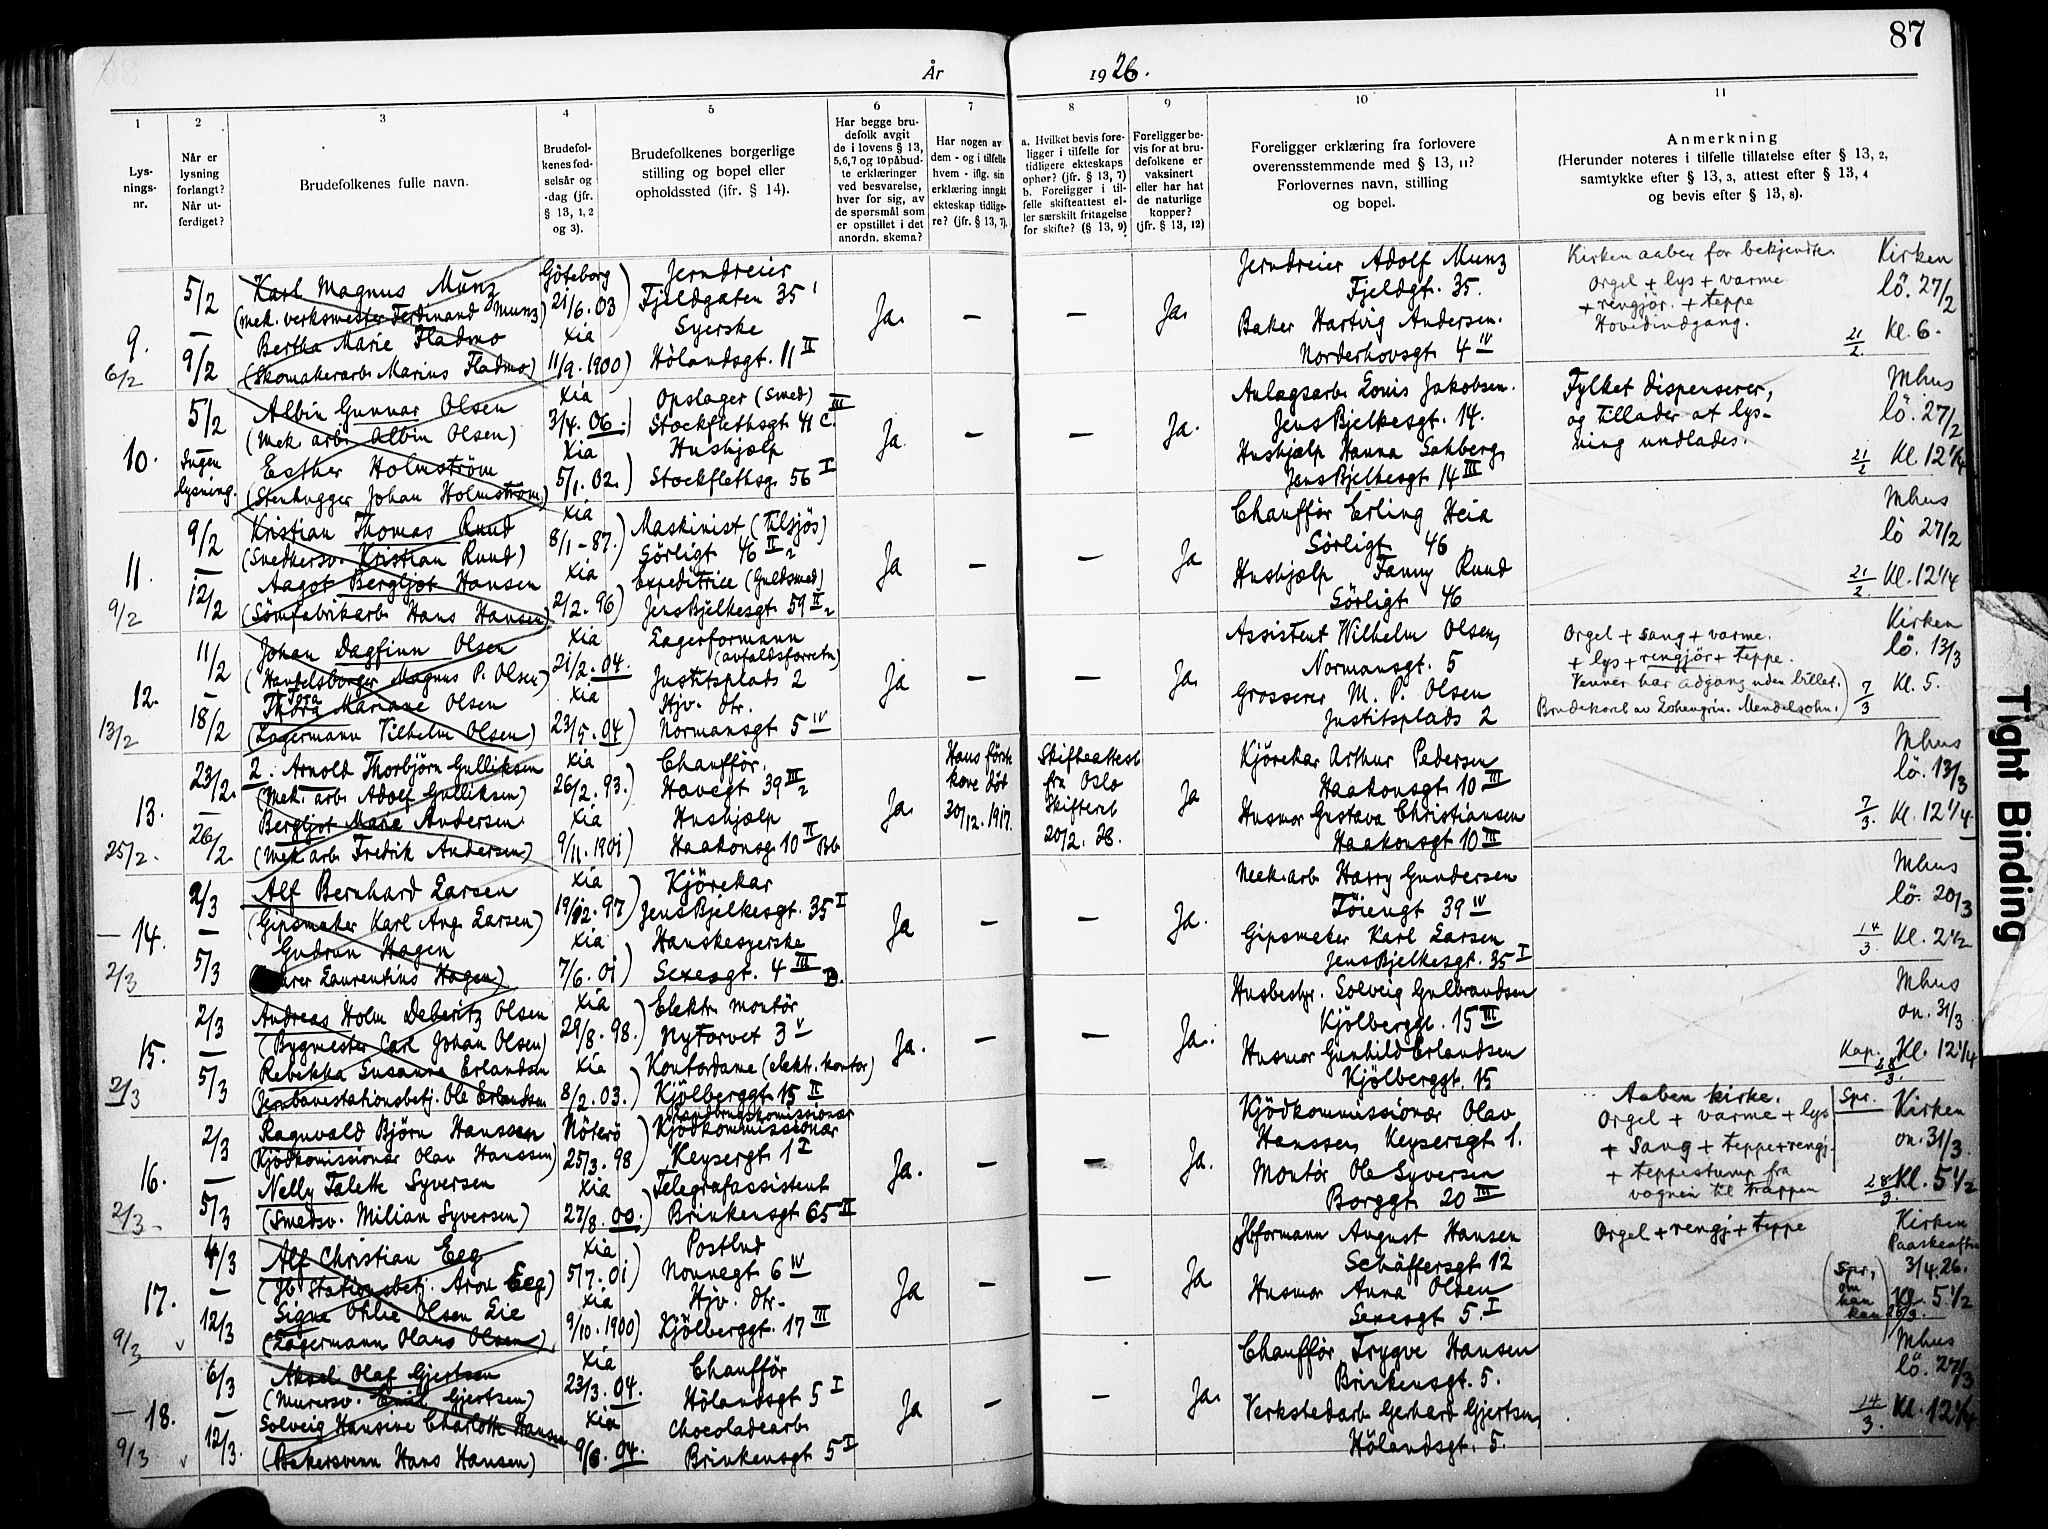 87
År 1926.
1 2 3 4 5 6 7 8 9 10 11
Lys-
nings-
nr.
Når er
lysning
forlangt?
Når ut-
ferdiget?
Brudefolkenes fulle navn.
Brudefol-
kenes fød-
selsår og
-dag (jfr.
§ 13, 1, 2
og 3).
Brudefolkenes borgerlige
stilling og bopel eller
opholdssted (jfr. § 14).
Har begge bru-
defolk avgit
de i lovens § 13,
5,6,7 og 10 påbud-
te erklæringer
ved besvarelse,
hver for sig, av
de spørsmål som
er opstillet i det
anordn. skema?
Har nogen av
dem - og i tilfelle
hvem - iflg. sin
erklæring inngått
ekteskap tidlige-
re? (jfr. § 13, 7).
a. Hvilket bevis fore-
ligger i tilfelle for
tidligere ekteskaps
ophør? (jfr. § 13, 7)
b. Foreligger i til-
felle skifteattest el-
ler særskilt fritagelse
for skifte? (§ 13, 9)
Foreligger be-
vis for at bru-
defolkene er
vaksinert
eller har hat
de naturlige
kopper?
(jfr. § 13, 12)
Foreligger erklæring fra forlovere
overensstemmende med § 13, 11?
Forlovernes navn, stilling
og bopel.
Anmerkning
(Herunder noteres i tilfelle tillatelse efter § 13, 2,
samtykke efter § 13, 3, attest efter § 13, 4
og bevis efter § 13, 8).
9.
6/2
5/2
—
9/2
Karl Magnus Munz
(Mek. verksmester Ferdinand Munz)
Bertha Marie Fladmo
(Skomakerarb. Marius Fladmo)
Göteborg
21/6. 03)
Xia
11/9. 1900)
Jerndreier
Fjeldgaten 35
Syerske
Hölandsgt. 11 II
Ja. — — Ja.
Jerndreier Adolf Munz
Fjeldgt. 35.
Baker Hartvig Andersen.
Norderhovsgt. 4 IV
Kirken aaben for bekjendte.
Orgel + lys + varme
+ rengjör. + teppe
Hovedindgang.
Kirken
lö. 27/2
21/2. Kl. 6.
10.
5/2
Ingen
lysning.
Albin Gunnar Olsen
(Mek. arb. Albin Olsen)
Esther Holmström
(Stenhugger Johan Holmström)
Xia
3/4. 06.)
Xia
5/1. 02.)
Opslager (Smed)
Stockflethsgt. 41 C. III
Hushjælp
Stockflethsg. 56 I
Ja. — — Ja.
Anlagsarb. Louis Jakobsen.
Jens Bjelkesgt. 14.
Hushjælp Hanna Sahberg
Jens Bjelkesgt. 14 III
Fylket dispenserer,
og tillader at lys-
ning undlades.
Mhus
lö. 27/2
21/2 Kl. 12 1/4
11.
9/2
9/2
—
12/2
Kristian Thomas Ruud
(Snedkersv. Kristian Ruud)
Aagot Bergljot Hansen
(Sömfabrikarb. Hans Hansen)
Xia
8/1-87.)
Xia
2/2. 96)
Maskinist (Tilsjös)
Sörligt. 46 II
Expeditrice (Guldsmed)
Jens Bjelkesgt. 59 II
Ja — — Ja
Chaufför Erling Heia
Sörligt. 46
Hushjælp Fanny Ruud
Sörligt. 46
Mhus
lö 27/2
21/2 Kl. 12 1/4
12.
13/2
11/2
—
18/2
Johan Dagfinn Olsen
(Handelsborger Magnus P. Olsen)
Thora Mariane Olsen
(Lagermann Vilhelm Olsen)
Xia
21/2. 04.
Xia
23/5. 04)
Lagerformann
(avfaldsforretn)
Justitsplads 2
Hjv. dtr.
Normansgt 5 IV
Ja — — Ja.
Assistent Wilhelm Olsen,
Normansgt. 5
Grosserer M. P. Olsen
Justitsplads 2
Orgel + sang + varme.
+ lys + rengjör + teppe.
Venner har adgang uden billet.
Brudekoret av Lohengrin. Mendelsohn.)
Kirken
lö. 13/3
7/3 Kl. 5.
13.
25/2.
23/2.
—
26/2.
2. Arnold Thorbjörn Gulliksen
(Mek. arb. Adolf Gulliksen)
Bergljot Marie Andersen
(Mek arb. Fredrik Andersen)
Xia
26/2. 93.)
Xia
9/11. 1901)
Chaufför.
Hovegt 39 III
Hushjælp
Haakonsg. 10 II Bb
Ja.
Hans förste
kone död
30/12. 1917.
Skifteattest
fra Oslo
Skifteret
20/2. 26.
Ja
Kjörekar Arthur Pedersen
Haakonsgt. 10 III
Husmor Gustava Christiansen
Haakonsgt 10 III
Mhus
lö. 13/3
7/3. Kl. 12 1/4.
14.
2/3
2/3
—
5/3
Alf Bernhard Larsen
(Gipsmaker Karl Aug. Larsen)
Gudrun Hagen
(Murer Laurentius Hagen)
Xia
19/12. 97)
Xia
7/6. 01)
Kjörekar
Jens Bjelkesgt. 35 I
Hanskesyerske
Sexesgt. 4 III B.
Ja — — Ja.
Mek. arb. Harry Gundersen
Töiengt 39 IV
Gipsmaker Karl Larsen
Jens Bjelkesgt. 35 I
Mhus
lö. 20/3
14/3. Kl. 2 1/2
15.
2/3
2/3
—
5/3
Andreas Holm Deberitz Olsen
(Bygmester Carl Johan Olsen)
Rebekka Susanna Erlandsen
(Jernbanestationsbetj. Ole Erlandsen
Xia
29/8. 98.)
Xia
8/2. 03.)
Elektr. montör
Nytorvet 3 V
Kontordame (elektr. kontor)
Kjölberggt. 15 II
Ja. — — Ja.
Husbestyr. Solveig Gulbrandsen
Kjölberggt. 15 III
Husmor Gunhild Erlandsen
Kjölberggt. 15
Mhus
on. 31/3
Kap. Kl. 12 1/4
28/3.
16.
2/3
2/3
—
5/3
Ragnvald Björn Hanssen
(Kjödkomissionær Olav Hanssen)
Nelly Falette Syversen
(Smedsv. Milian Syversen)
Nöterö
25/3. 98)
Xia
27/8. 00.)
Landbrugskomissionær
Kjödkommissionær
Keysergt. 1 I
Telegrafassistent
Brinkensgt. 65 II
Ja. — — Ja.
Kjödkommissionær Olav
Hanssen, Keysersgt 1.
Montör Ole Syversen
Borggt. 20 III
Aaben kirke.
Orgel + varme + lys
+ sang + teppe + rengj.
+ teppestump fra
vognen til trappen
Spr. Kirken
on. 31/3.
28/3. Kl. 5 1/2
17.
9/3
4/3
—
12/3
Alf Christian Eeg
(Jb. Stationsbetj. Aron Eeg)
Signe Othlie Olsen Lie
(Lagermann Olaus Olsen)
Xia
5/7. 01)
Xia
9/10. 1900)
Postbud
Nonnegt 6 IV
Hjv. dtr.
Kjölberggt. 17 III
Ja — — Ja
Jbformann August Hansen
Schäffersgt 12
Husmor Anna Olsen
Sexesgt 5. I
Orgel + rengj + teppe
Kirken
Paaskeaften
3/4. 26.
(Spr.,
om
han
kan)
Kl. 5 1/2
28/3.
18.
9/3
6/3
—
12/3.
Aksel Olaf Gjertsen
(Murersv. Emil Gjertsen)
Solveig Hansine Charlotte Hansen
(Bakersvenn Hans Hansen)
Xia
23/3. 04.
Xia
9/8. 04.
Chaufför
Hölandsgt 5 I
Chocoladearb.
Brinkensgt 5 I
Ja — — Ja.
Chaufför Trygve Hansen
Brinkensgt. 5.
Verkstedarb. Gerhard Gjertsen,
Hölandsgt. 5.
Mhus
lö. 27/3
14/3. Kl. 12 1/4
Tight Binding